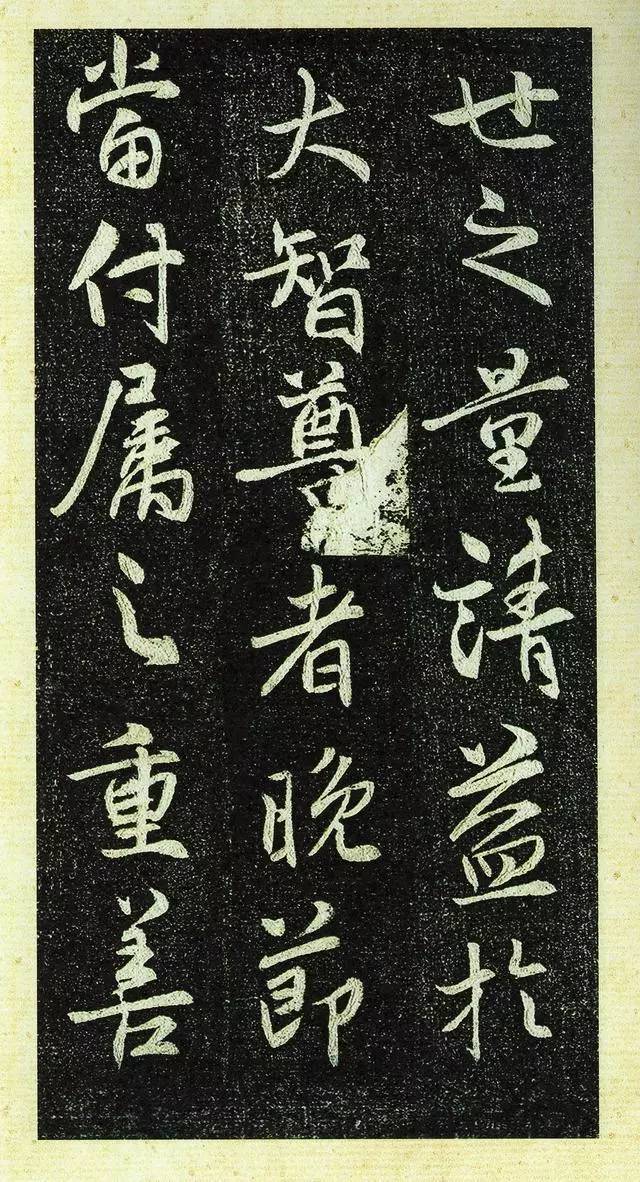 世之量請益於
大智尊者晚節
當付属之重善